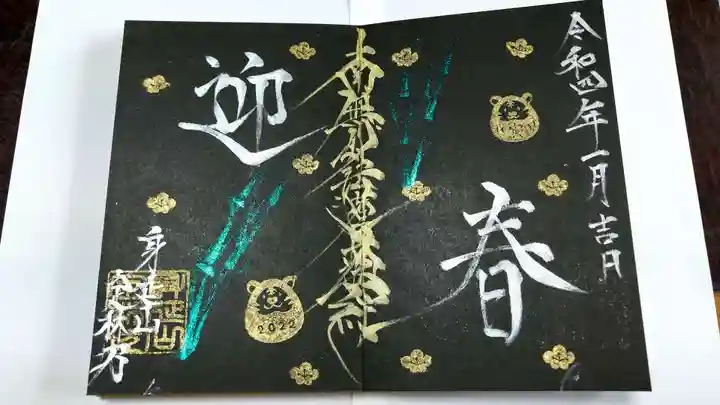 令和四年一月吉日
春
南無妙法蓮華経
迎
2022
身延山